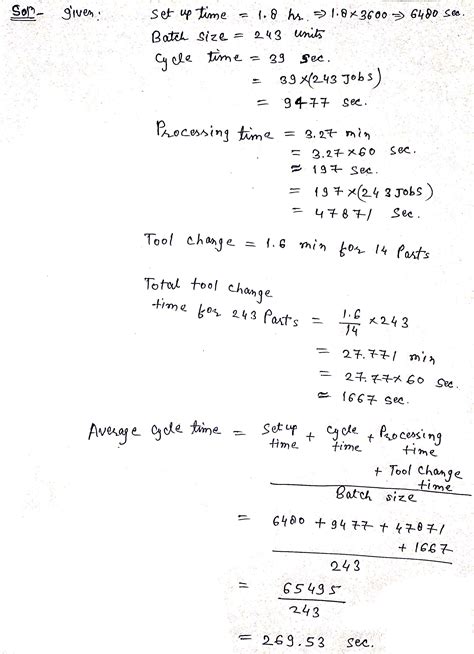 Soln- given: Set up time = 1.8 hr. ⇒ 1.8 × 3600 ⇒ 6480 sec.
Batch size = 243 units
Cycle time = 39 sec.
= 39 × (243 Jobs)
= 9477 sec.
Processing time = 3.27 min
= 3.27 × 60 sec.
≈ 197 sec.
= 197 × (243 Jobs)
= 47871 sec.
Tool change = 1.6 min for 14 Parts
Total tool change
time for 243 Parts = 1.6/14 × 243
= 27.771 min
= 27.77 × 60 sec.
≈ 1667 sec.
Average cycle time = Set up time + Cycle time + Processing time
+ Tool change time
Batch size
= 6480 + 9477 + 47871
+ 1667
243
= 65495
243
= 269.53 sec.